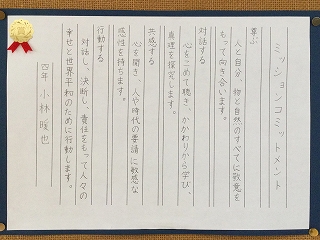 ミッションコミットメント
尊ぶ
人と自分、物と自然のすべてに敬意を
もって向き合います。
対話する
心をこめて聴き、かかわりから学び、
真理を探究します。
共感する
心を開き、人や時代の要請に敏感な
感性を持ちます。
行動する
対話し、決断し、責任をもって人々の
幸せと世界平和のために行動します。
四年 小林暖也